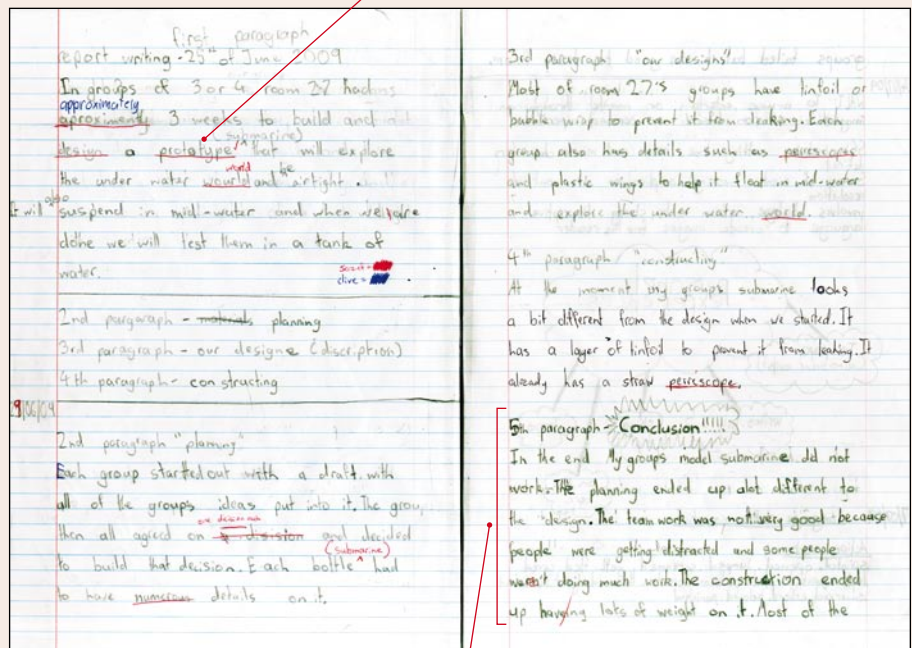 first paragraph
report writing - 25th of June 2009
In groups of 3 or 4 room 27 had
approximately
aproximently 3 weeks to build and
(submarine)
design a prototype ^ that will explore
world be
the under water wourld and airtight.
It will also suspend in mid-water and when we are
done we will test them in a tank of
water.
scarlet =
clive =
2nd pargaraph - materials planning
3rd paragraph - our designe (discription)
4th paragraph - constructing
29/06/09
2nd paragraph "planning"
Each group started out with a draft. with
all of the groups ideas put into it. The grou
one
then all agreed on a disision and decided
(submarine)
to build that decision. Each bottle ^ had
to have numerous details on it.
3rd paragraph "our designs"
Most of room 27's groups have tinfoil or
bubble wrap to prevent it from leaking. Each
group also has details such as periscopes
and plastic wings to help it float in mid-water
and explore the under water world.
4th paragraph "constructing"
At the moment my groups submarine looks
a bit different from the design when we started. It
has a layer of tinfoil to prevent it from leaking. It
already has a straw periscope.
5th paragraph - Conclusion!!!!!
In the end My groups model submarine did not
work. The planning ended up alot different to
the design. The team work was not very good because
people were getting distracted and some people
weren't doing much work. The construction ended
up having lots of weight on it. Most of the